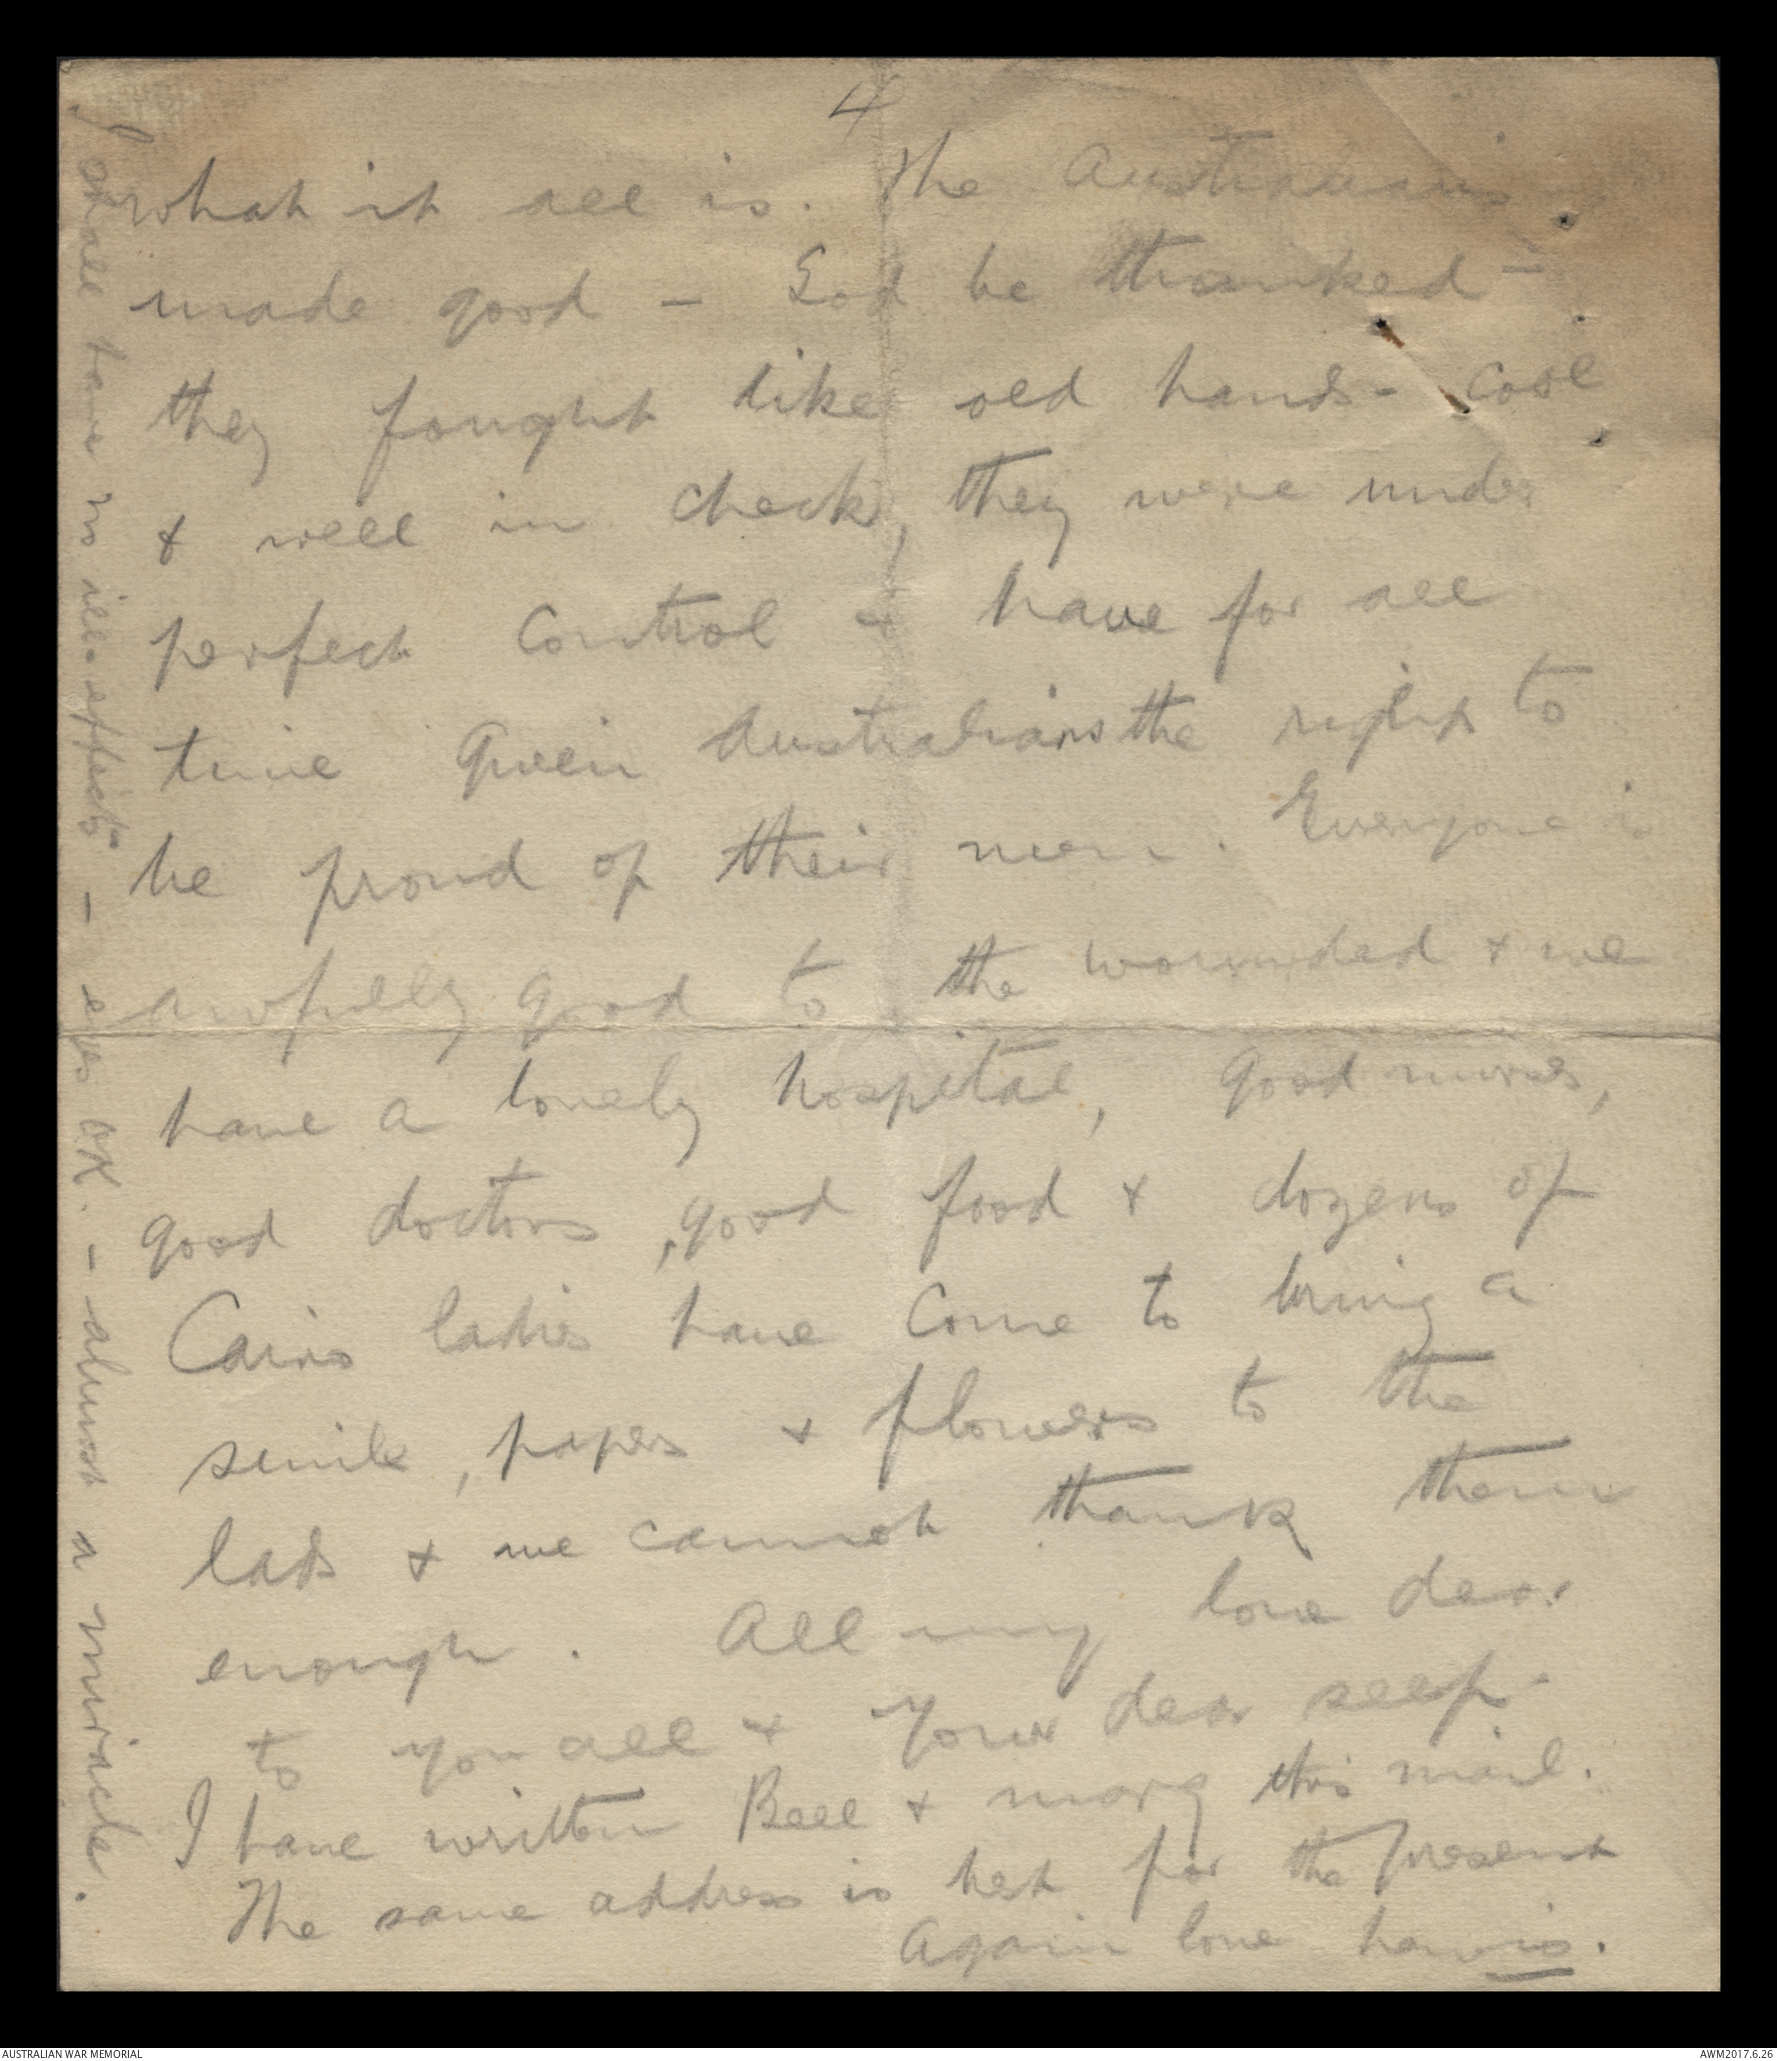 4
what it all is. The Australians
made good - God be thanked -
they fought like old hands - cool
& well in check, they were under
perfect control & have for all
time given Australians the right to
be proud of their men. Everyone is
awfully good to the wounded & we
have a lovely hospital, good nurses,
good doctors, good food & dozens of
Cairo ladies have come to bring a
smile, papers & flowers to the
lads & we cannot thank them
enough. All my love dear
to you all & your dear self.
I have written Bell & Marg this mail.
The same address is best for the present
Again love
I shall have no ill-effects - eyes OK. - almost a miracle.
AUSTRALIAN WAR MEMORIAL
AWM2017.6.26